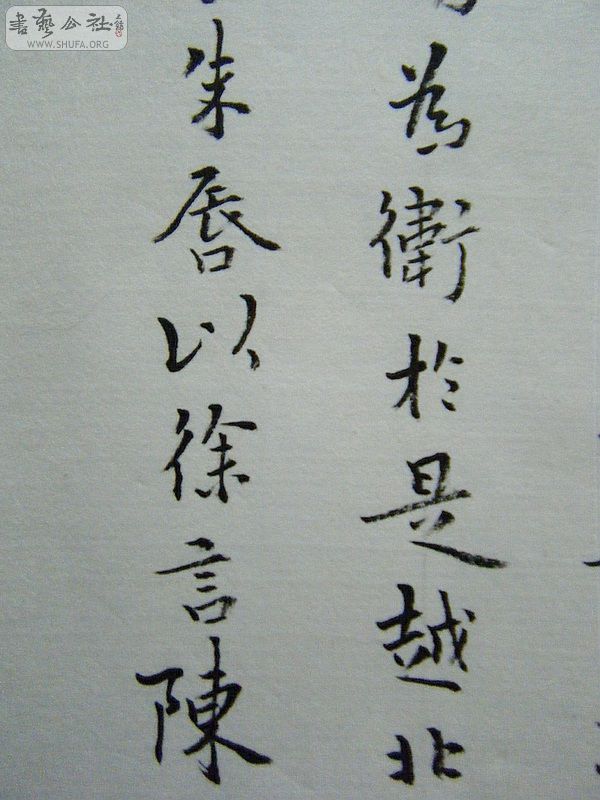 書藝公社
WWW.SHUFA.ORG
為衛於是越北
朱唇以徐言陳